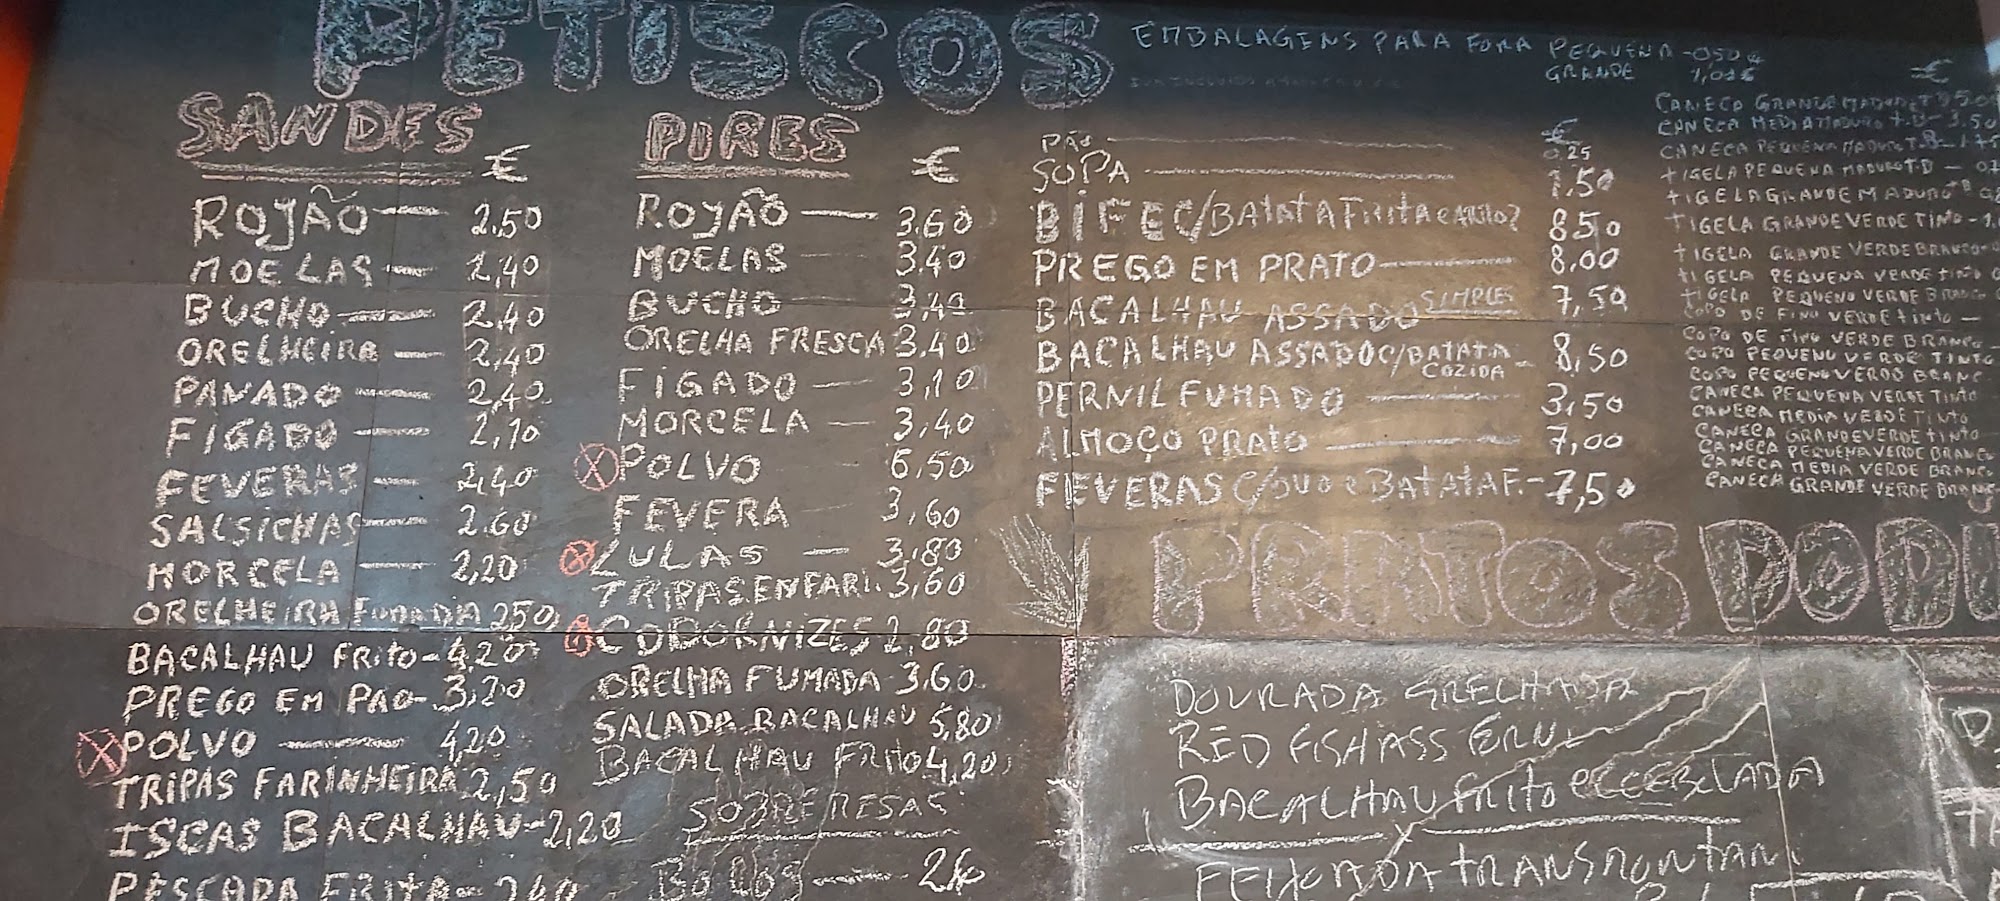 PETISCOS
SANDES
€
ROJÃO 2.50
MOELAS 2,40
BUCHO 2,40
ORELHEIRA 2,40
PANADO 2,40
FIGADO 2,10
FEVERAS 2,40
SALSICHAS 2.60
MORCELA 2,20
ORELHEIRA FUMADA 250
BACALHAU FRITO - 4,20
PREGO EM PAO - 3,20
X POLVO 4,20
TRIPAS FARINHEIRA 2,50
ISCAS BACALHAU - 2,20
PESCADA FRITA - 2,40
PIRES
€
ROJÃO 3.60
MOELAS 3.40
BUCHO 3,40
ORELHA FRESCA 3,40
FIGADO 3,10
MORCELA 3,40
X POLVO 6,50
FEVERA 3,60
X LULAS 3,80
TRIPAS ENFARI. 3,60
CODORNIZES 2,80
ORELHA FUMADA 3,60
SALADA BACALHAU 5,80
BACALHAU FRITO 4,20
SOBREMESAS
BOLOS
EMBALAGENS PARA FORA PEQUENA - 050 €
GRANDE 1,00 €
€
PÃO 0.25
SOPA 1,50
BIFE C/BATATA FRITA e ARROZ 8,50
PREGO EM PRATO 8,00
BACALHAU ASSADO SIMPLES 7,50
BACALHAU ASSADO C/BATATA COZIDA - 8,50
PERNIL FUMADO 3,50
ALMOÇO PRATO 7,00
FEVERAS C/OVO e BATATA F. - 7,50
€
CANECA GRANDE MADURO
CANECA MEDIA MADURO T.B - 3.50
CANECA PEQUENA MADURO T.B -
TIGELA PEQUENA MADURO
TIGELA GRANDE MADURO
TIGELA GRANDE VERDE TINTO -
TIGELA GRANDE VERDE BRANCO
TIGELA PEQUENA VERDE TINTO
TIGELA PEQUENO VERDE BRANCO
COPO DE FINO VERDE TINTO —
COPO DE FINO VERDE BRANCO
COPO PEQUENO VERDE TINTO
COPO PEQUENO VERDE BRANC
CANECA PEQUENA VERDE TINTO
CANECA MEDIA VERDE TINTO
CANECA GRANDE VERDE TINTO
CANECA PEQUENA VERDE BRANCO
CANECA MEDIA VERDE BRANCO
CANECA GRANDE VERDE BRANC
PRATOS DO DI
DOURADA GRELHADA
RED FISH ASS FORN
BACALHAU FRITO CEBOLADA
FEIJOADA TRANSMONTAN